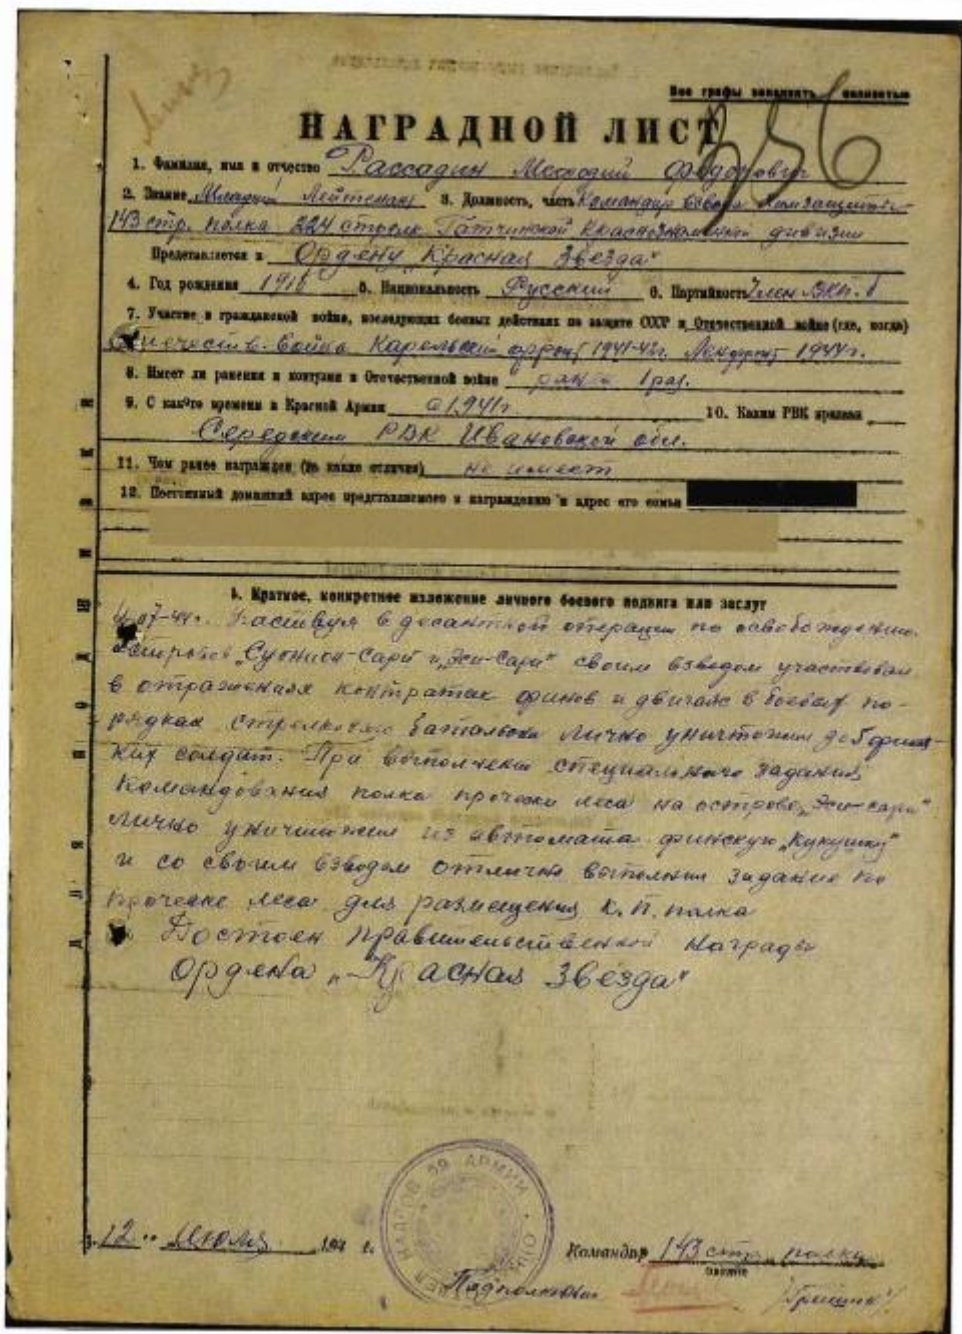 Все графы заполнять полностью
356
НАГРАДНОЙ ЛИСТ
1. Фамилия, имя и отчество Рассадин Федорович
2. Звание Младший Лейтенант 3. Должность, часть Командир взвода
143 стр. полка 224 стрелк Гатчинской Краснознаменной дивизии
Представляется к Ордену „Красная Звезда"
4. Год рождения 5. Национальность Русский 6. Партийность Член ВКП.б
7. Участие в гражданской войне, последующих боевых действиях по защите СССР и Отечественной войне (где, когда)
Отечеств. война Карельский фронт 1941-42г. Ленфронт 1944г.
8. Имеет ли ранения и контузии в Отечественной войне ранен 1 раз.
9. С какого времени в Красной Армии с 1941г 10. Каким РВК призван
Середским РВК Ивановской обл.
11. Чем ранее награжден (за какие отличия) не имеет
12. Постоянный домашний адрес представляемого к награждению и адрес его семьи
1. Краткое, конкретное изложение личного боевого подвига или заслуг
07-44г. Участвуя в десантной операции по освобождению
островов „Суонион-Сари и „Эси-Сари" своим взводом участвовал
в отражениях контратак финов и двигаясь в боевых по-
рядках стрелкового батальона лично уничтожил до 5 финс-
ких солдат. При выполнении специального задания
Командования полка прочески леса на острове „Эси-сари"
лично уничтожил из автомата финскую „Кукушку"
и со своим взводом отлично выполнил задание по
проческе леса для размещения К.П. полка
Достоен правительственной награды
Ордена „Красная Звезда"
ОТДЕЛ КАДРОВ 59 АРМИИ
12 Июля 194 г.
Командир 143 стр. полка
звание
Подполковник